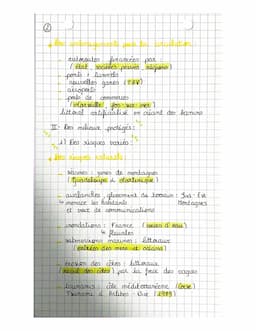 ②
• Des aménagements pour la circulation
- autoroutes financées par
(état, sociétés privées régions)
- ports, tunnels
- nouvelles gares (TGV)
- aéroports
- ports de commerces
(Marseille, fos-sur-mer)
littoral artificialisé en créant des barres
II- Des milieux protégés:
1) Des risques variés
• Des risques naturels
- séismes: zones de montagnes
(Guadeloupe & Martinique)
- avalanches, glissement de terrain:
↳ menace les habitants Montagnes
et voies de communications
- inondations: France (mises d'eau)
↳ fleuves
- submersions marines: littoraux
(entrées des mers et océans)
- érosion des côtes: littoraux
(recul des côtes) par la force des vagues
- tsunamis: côte méditerranéenne (Corse)
Tsunami à Antibes - Nice (1979)